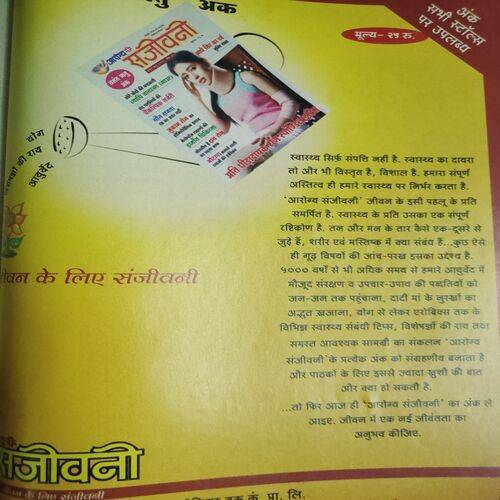 अंक
अंक
सभी स्टॉल्स
पर उपलब्ध
मूल्य- २५ रु.
आरोग्य
संजीवनी
योग
की राय
आयुर्वेद
वन के लिए संजीवनी
स्वास्थ्य सिर्फ़ संपत्ति नहीं है. स्वास्थ्य का दायरा
तो और भी विस्तृत है, विशाल है. हमारा संपूर्ण
अस्तित्व ही हमारे स्वास्थ्य पर निर्भर करता है.
'आरोग्य संजीवनी' जीवन के इसी पहलू के प्रति
समर्पित है. स्वास्थ्य के प्रति उसका एक संपूर्ण
दृष्टिकोण है. तन और मन के तार कैसे एक-दूसरे से
जुड़े हैं, शरीर एवं मस्तिष्क में क्या संबंध हैं...कुछ ऐसे
ही गूढ़ विषयों की जांच-परख इसका उद्देश्य है.
५००० वर्षों से भी अधिक समय से हमारे आयुर्वेद में
मौजूद संरक्षण व उपचार-उपाय की पद्धतियों को
जन-जन तक पहुंचाना, दादी मां के नुस्खों का
अद्भुत ख़ज़ाना, योग से लेकर एरोबिक्स तक के
विभिन्न स्वास्थ्य संबंधी टिप्स, विशेषज्ञों की राय तथा
समस्त आवश्यक सामग्री का संकलन 'आरोग्य
संजीवनी' के प्रत्येक अंक को संग्रहणीय बनाता है
और पाठकों के लिए इससे ज्यादा ख़ुशी की बात
और क्या हो सकती है.
...तो फिर आज ही 'आरोग्य संजीवनी' का अंक ले
आइए. जीवन में एक नई जीवंतता का
अनुभव कीजिए.
संजीवनी
के लिए संजीवनी
बुक कं. प्रा. लि.